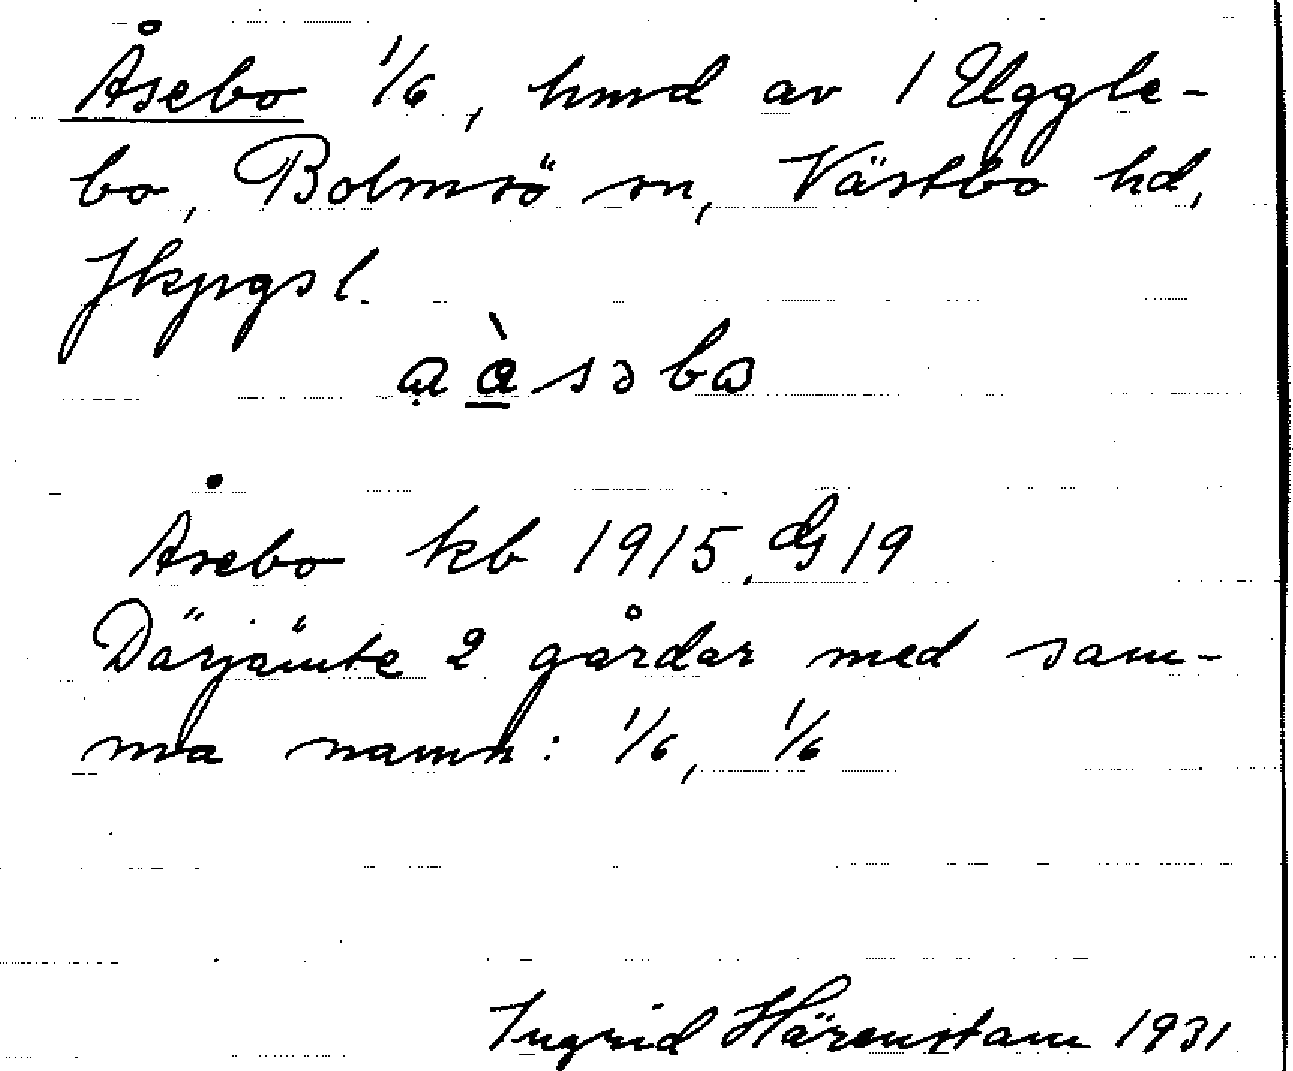 Åsebo 1/6, hmd av 1 Uggle-
bo, Bolmsö sn, Västbo hd,
Jkpgs l.
Åsebo kb 1915, dG 19
Därjämte 2 gårdar med sam-
ma namn: 1/6, 1/6
Ingrid Härenstam 1931